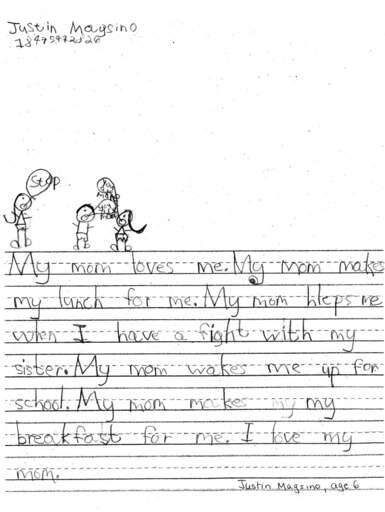 Justin Magsino
Stop
My mom loves me. My mom makes
my lunch for me. My mom hleps me
when I have a fight with my
sister. My mom wakes me up for
school. My mom makes my
breakfast for me. I love my
mom.
Justin Magsino, age 6